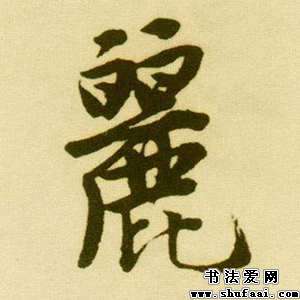 麗
书法爱网
www.shufaai.com